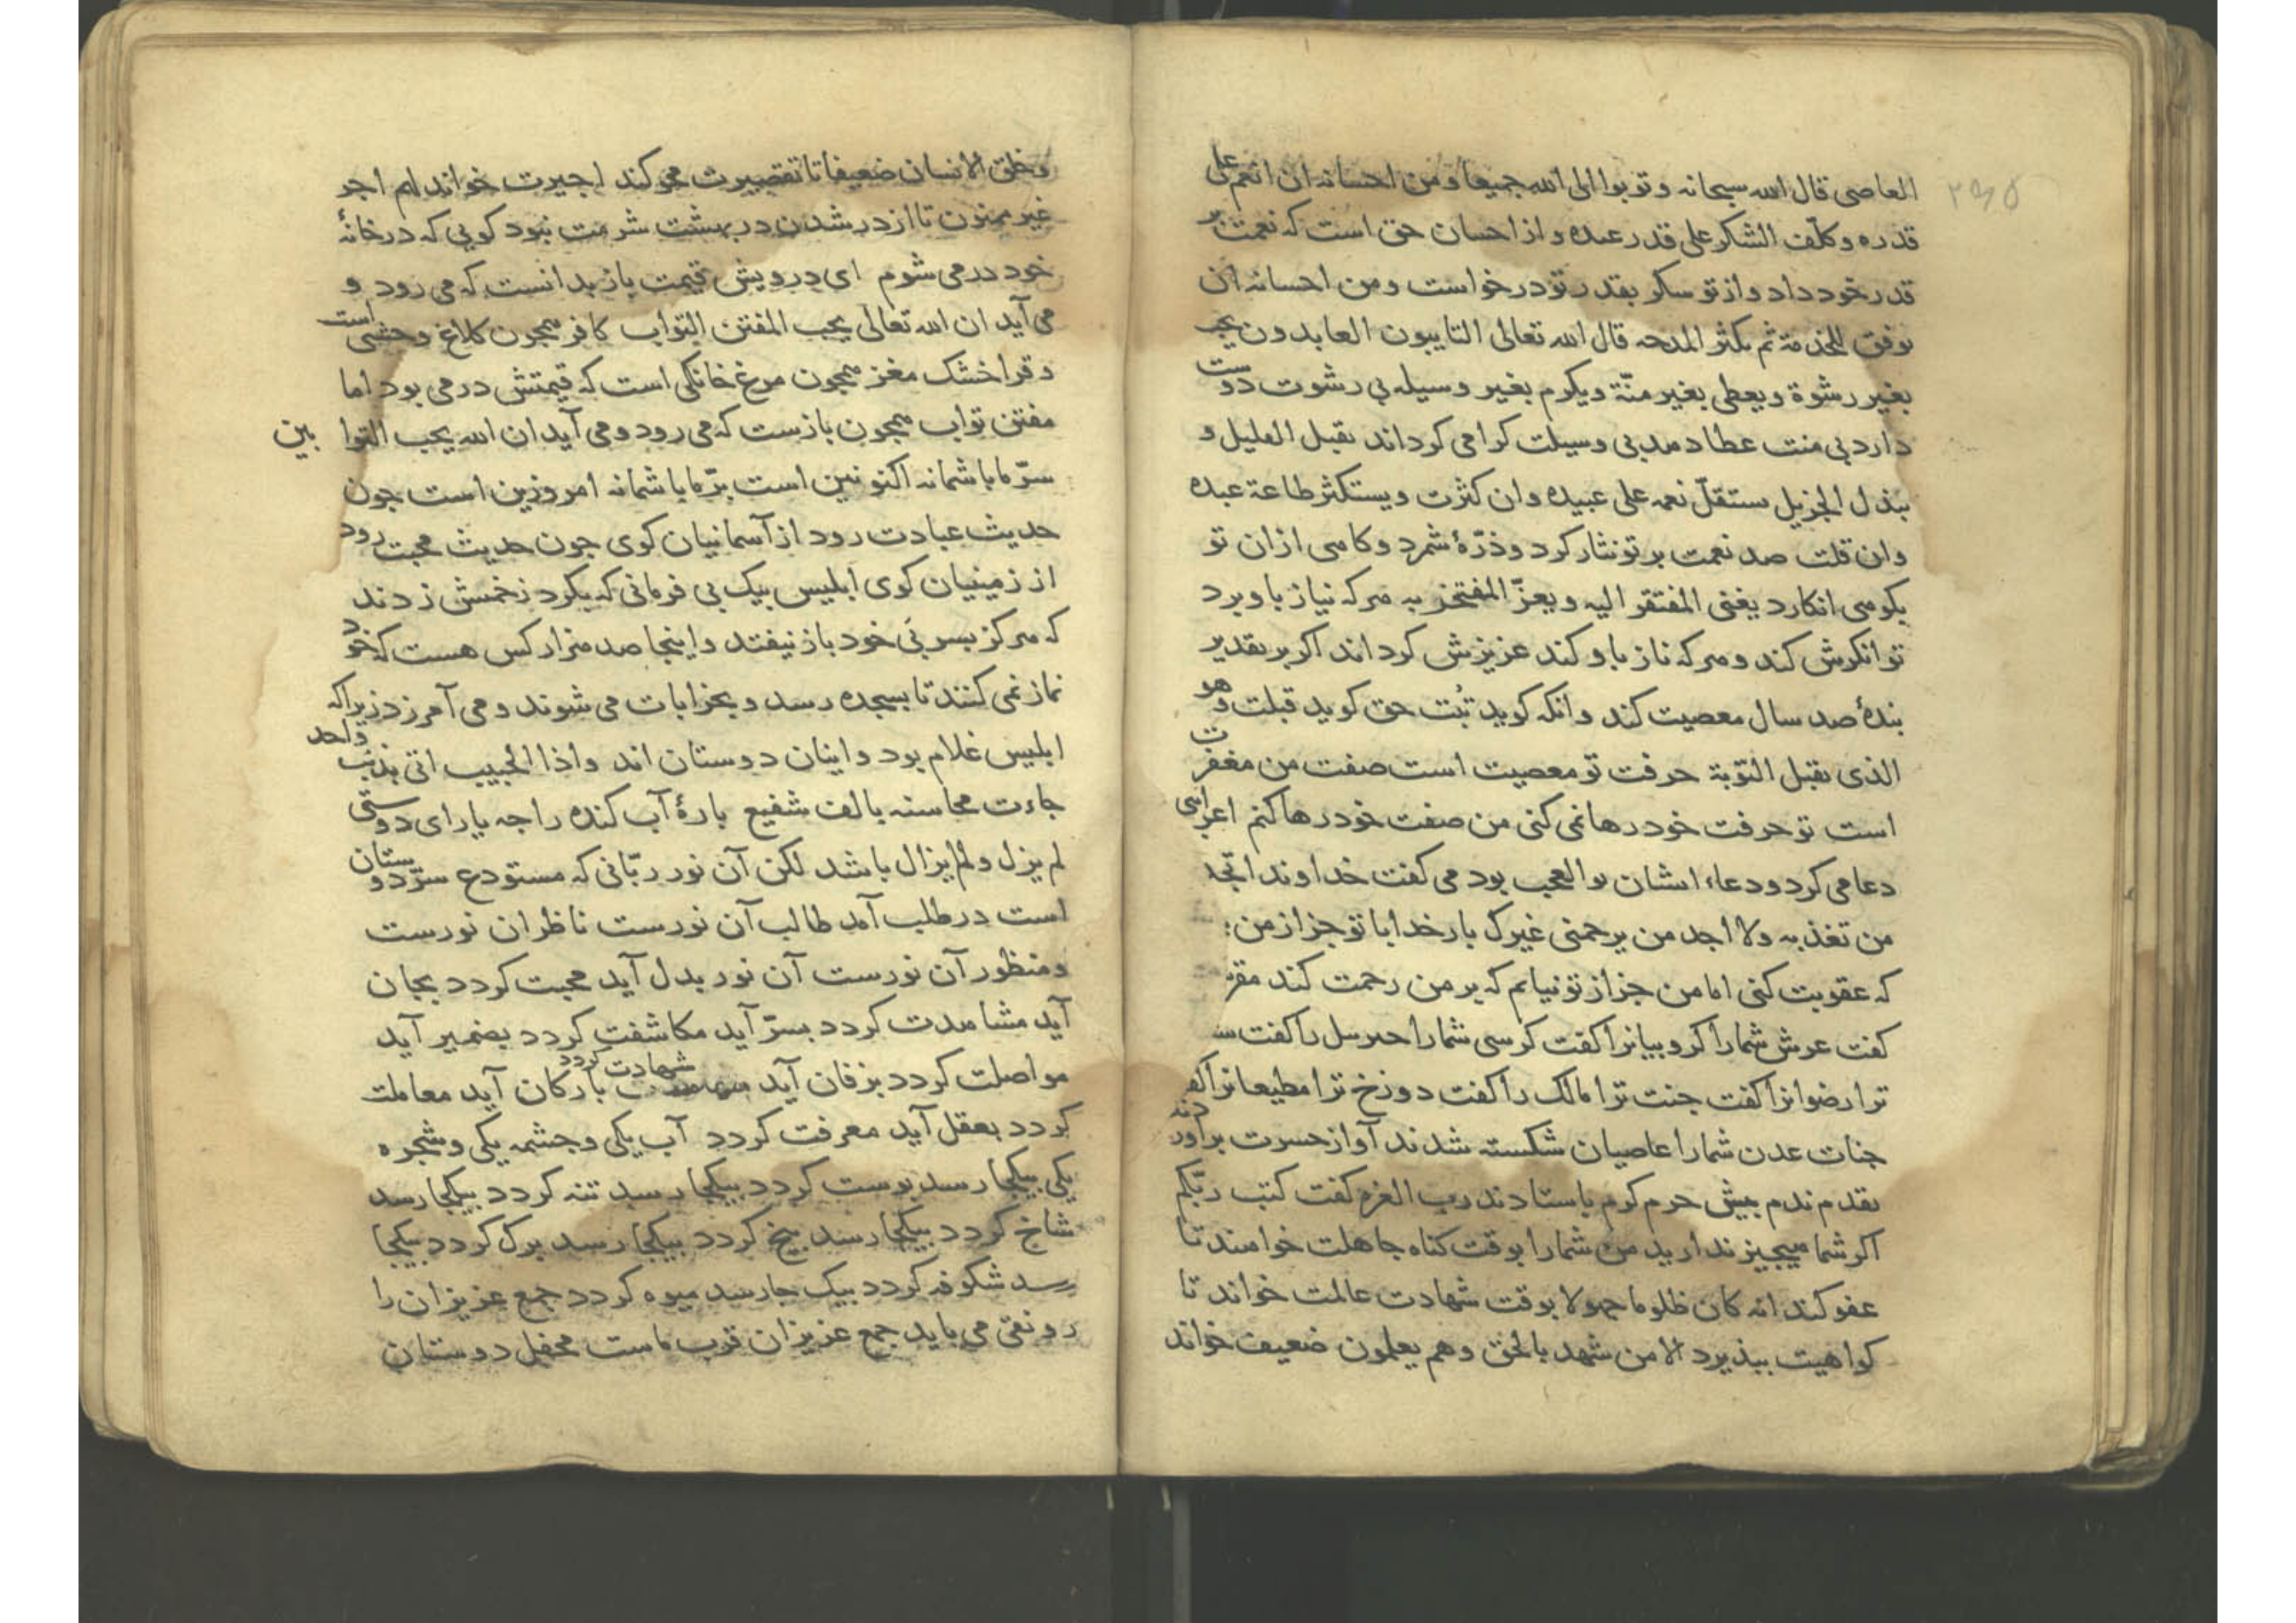 ۲۶۵
العاصی قال الله سبحانه و توبوا الی الله جمیعا و من احسانه ان انعم علی
قدره و کلّف الشکر علی قدر عبده و از احسان حق است که نعمت بر
قدر خود داد و از تو سکر بقدر تو درخواست و من احسانه ان
یوفق للخذمة ثم یکثر المدحه قال الله تعالی التایبون العابدون یحب
بغیر رشوة و یعطی بغیر منّة و یکرم بغیر وسیله بی رشوت دوست
دارد بی منت عطا دهد بی وسیلت کرامی کرداند یقبل القلیل و
یبذل الجزیل یستقلّ نعمه علی عبیده و ان کثرت و یستکثر طاعة عبده
و ان قلت صد نعمت بر تو نثار کرد و ذرّۀ شمرد و کاهی از ان تو
بکوهی انکارد یغنی المفتقر الیه و یعزّ المفتخر به هر که نیاز باو برد
توانکرش کند و هر که ناز باو کند عزیزش کرداند اکر بر تقدیر
بندۀ صد سال معصیت کند و انکه کوید تُبت حق کوید قبلت و هو
الذی یقبل التوبة حرفت تو معصیت است صفت من مغفرت
است تو حرفت خود رها نمی کنی من صفت خود رها کنم اعرابی
دعا می کرد و دعاء ایشان بوالعجب بود می کفت خداوندا تجد
من تعذبه و لا اجد من یرحمنی غیرک بار خدایا تو جز از من
که عقوبت کنی اما من جز از تو نیابم که بر من رحمت کند
کفت عرش شما را کروبیانرا کفت کرسی شما را جبرییل را کفت
ترا رضوانرا کفت جنت ترا مالک را کفت دوزخ ترا مطیعانرا کفت
جنات عدن شما را عاصیان شکسته شدند آواز حسرت برآوردند
بقدم ندم بیش حرم کرم باستادند رب العزه کفت کتب ربّکم
اکر شما هیچیز ندارید من شما را بوقت کناه جاهلت خوانند تا
عفو کند انه کان ظلوما جهولا بوقت شهادت عالمت خواند تا
کواهیت ببذیرد الا من شهد بالحق و هم یعلمون ضعیف خواند
و خلق الانسان ضعیفا تا تقصیرت محو کند اجیرت خواند لهم اجر
غیر ممنون تا از در شدن در بهشت شرمت نبود کویی که در خانۀ
خود در می شوم ای درویش قیمت باز بدانست که می رود و
می آید ان الله تعالی یحب المفتن التواب کافر همچون کلاغ وحشی است
و قرا خشک مغز همچون مرغ خانکی است که قیمتش درمی بود اما
مفتن تواب همچون بازست که می رود و می آید ان الله یحب التوابین
سرّ ما با شما نه اکنونین است برّ ما با شما نه امروزین است جون
حدیث عبادت رود از آسمانیان کوی جون حدیث محبت رود
از زمینیان کوی ابلیس بیک بی فرمانی که بکرد زخمش زدند
که هرکز بسر بَی خود باز نیفتد و اینجا صد هزار کس هست که خود
نماز نمی کنند تا بسجده رسد و بخرابات می شوند و می آمرزد زیرا که
ابلیس غلام بود و اینان دوستان اند و اذا الحبیب اتی بذنب واحد
جاءت محاسنه بالف شفیع بارۀ آب کنده را جه یارای دوستی
لم یزل و لم یزال باشد لکن آن نور ربّانی که مستودع سرّ دوستان
است در طلب آمد طالب آن نورست ناظر ان نورست
و منظور آن نورست آن نور بدل آید محبت کردد بجان
آید مشاهدت کردد بسرّ آید مکاشفت کردد بضمیر آید
مواصلت کردد بزفان آید شهادت کردد بارکان آید معاملت
کردد بعقل آید معرفت کردد آب یکی و جشمه یکی و شجره
یکی بیکجا رسد بوست کردد بیکجا رسد تنه کردد بیکجا رسد
شاخ کردد بیکجا رسد بیخ کردد بیکجا رسد برک کردد بیکجا
رسد شکوفه کردد بیک جا رسد میوه کردد جمع عزیزان را
رونقی می باید جمع عزیزان قرب ماست محفل دوستان